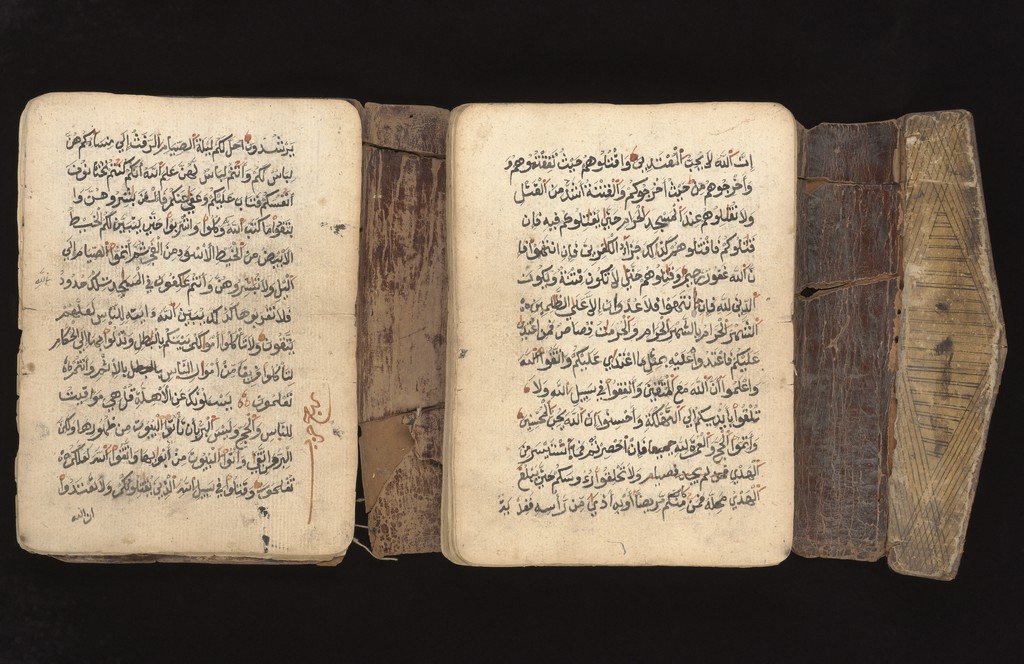 يرشدون احل لكم ليلة الصيام الرفث إلى نسائكم هن
لباس لكم وأنتم لباس لهن علم الله أنكم كنتم تختانون
أنفسكم فتاب عليكم وعفى عنكم فالئن بشروهن وا
بتغوا ما كتب الله لكم وكلوا واشربوا حتى يتبين لكم الخيط
الأبيض من الخيط الأسود من الفجر ثم أتموا الصيام إلى
اليل ولا تبشروهن وأنتم عكفون في المسجد تلك حدود
الله
فلا تقربوها كذلك يبين الله ءايته للناس لعلهم
يتقون ولا تأكلوا أموالكم بينكم بالبطل وتدلوا بها إلى الحكام
لتأكلوا فريقا من أموال الناس بالبطل بالإثم وأنتم
تعلمون يسئلونك عن الأهلة قل هي مواقيت
للناس والحج وليس البر بأن تأتوا البيوت من ظهورها ولكن
البر من اتقى وأتوا البيوت من أبوابها واتقوا الله لعلكم
تفلحون وقتلوا في سبيل الله الذين يقتلونكم ولا تعتدوا
ان الله
إن الله لا يحب المعتدين واقتلوهم حيث ثقفتموهم و
وأخرجوهم من حيث أخرجوكم والفتنة أشد من القتل
ولا تقتلوهم عند المسجد الحرام حتى يقتلوكم فيه فإن
قتلوكم فاقتلوهم كذلك جزاء الكفرين فإن انتهوا فا
ن الله غفور رحيم وقتلوهم حتى لا تكون فتنة ويكون
الدين لله فإن انتهوا فلا عدوان إلا على الظلمين
الشهر الحرام بالشهر الحرام والحرمت قصاص فمن اعتدى
عليكم فاعتدوا عليه بمثل ما اعتدى عليكم واتقوا الله
واعلموا أن الله مع المتقين وأنفقوا في سبيل الله ولا
تلقوا بأيديكم إلى التهلكة وأحسنوا إن الله يحب المحسنين
وأتموا الحج والعمرة لله فإن أحصرتم فما استيسر من
الهدي فمن لم يجد فصيام ولا تحلقوا رءوسكم حتى يبلغ
الهدي محله فمن كان منكم مريضا أو به أذى من رأسه ففد ية